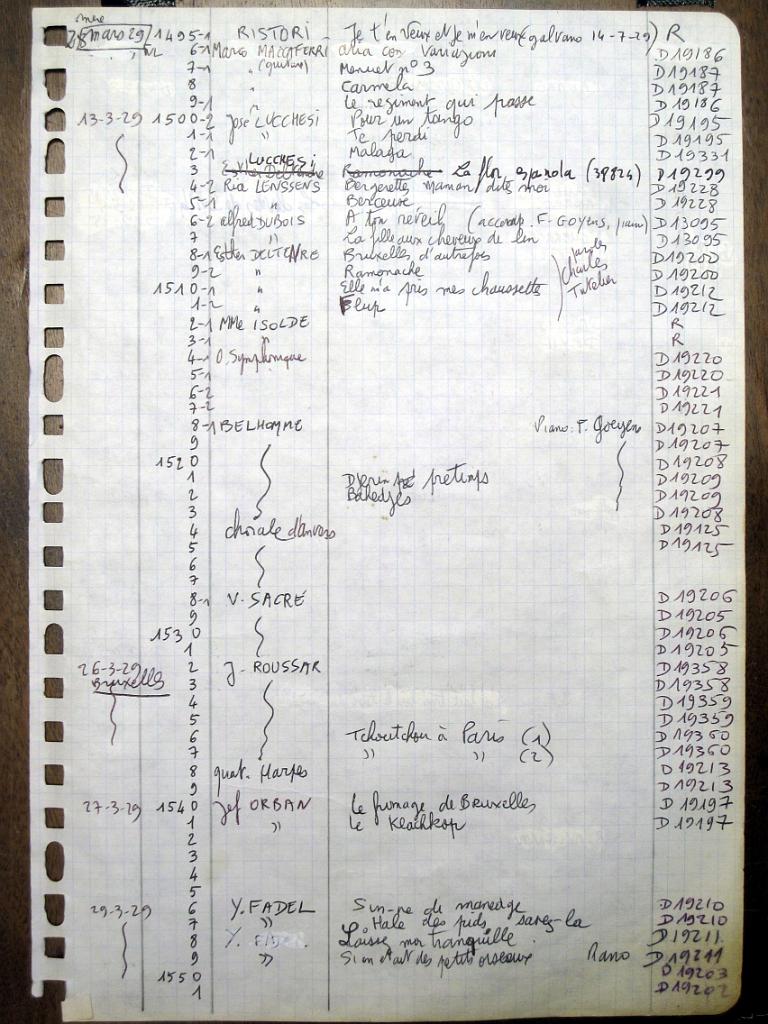 28 mars 29 1495-1 RISTORI - Je t'en veux et je m'en veux (galvano 14-7-29) R
6-1 Mario MACCAFERRI aria con variazioni D 19186
7-1 " (guitare) Menuet n° 3 D 19187
8 " Carmela D 19187
9-1 " Le regiment qui passe D 19186
13-3-29 1500-2 José LUCCHESI Pour un tango D 19195
1-1 " Te perdi D 19195
2-1 " Malaga D 19331
3 LUCCHESI Ramonache La flor española (39824) D 19299
4-2 Ria LENSSENS Bergerettes maman dites moi D 19228
5-1 " Berceuse D 19228
6-2 alfred DUBOIS A ton réveil (accomp. F. GOYENS, piano) D 13095
7 " La fille aux cheveux de lin D 13095
8-1 Esther DELTENRE Bruxelles d'autrefois D 19200
9-2 " Ramonache D 19200
1510-1 " Elle m'a pris mes chaussettes D 19212
1-2 " Flup D 19212
paroles Charles Tutelier
2-1 Mme ISOLDE R
3-1 " R
4-1 O. Symphonique D 19220
5-1 D 19220
6-2 D 19221
7-2 D 19221
8-1 BELHOMME Piano: F. Goeyens D 19207
9 D 19207
1520 D 19208
1 Djerin pretimps D 19209
2 Bahedjes D 19209
3 D 19208
4 chorale d'anvers D 19125
5 D 19125
6
7
8-1 V. SACRÉ D 19206
9 D 19205
1530 D 19206
1 D 19205
26-3-29 2 J. ROUSSAR D 19358
Bruxelles 3 D 19358
4 D 19359
5 D 19359
6 Tchoutchou à Paris (1) D 19360
7 " " (2) D 19360
8 quat. Harpes D 19213
9 D 19213
27-3-29 1540 Jef ORBAN Le fumage de Bruxelles D 19197
1 " Le Klachkop D 19197
2
3
4
5
29-3-29 6 Y. FADEL D 19210
7 " D 19210
8 Y. FADEL Laisse moi tranquille D 19211
9 " Si on était des petits oiseaux Piano D 19211
1550 D 19203
1 D 19202